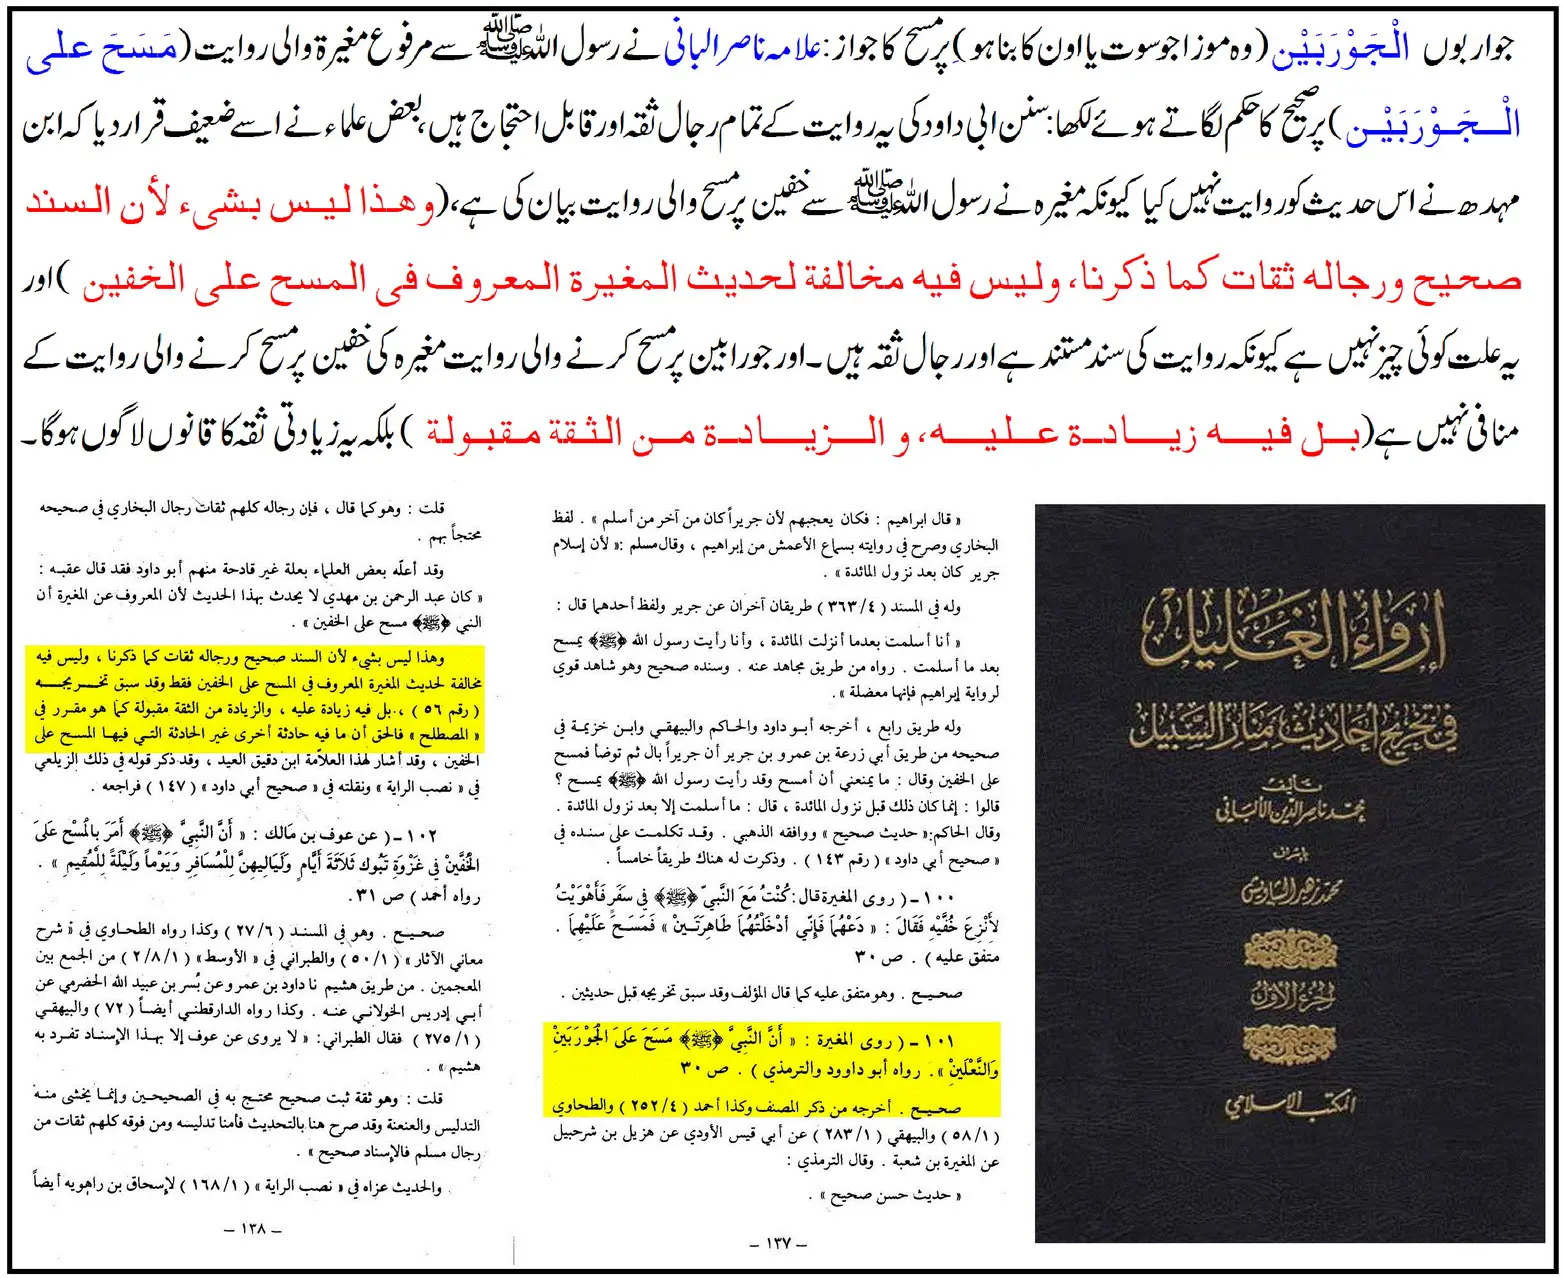 جواربوں الْجَوْرَبَيْن (وہ موزا جو سوت یا اون کا بنا ہو) پر مسح کا جواز: علامہ ناصر البانی نے رسول اللہ ﷺ سے مرفوع مغیرۃ والی روایت (مَسَحَ على
الْـجَـوْرَبَيْـن) پر صحیح کا حکم لگاتے ہوئے لکھا: سنن ابی داود کی یہ روایت کے تمام رجال ثقہ اور قابل احتجاج ہیں، بعض علماء نے اسے ضعیف قرار دیا کہ ابن
مہدی نے اس حدیث کو روایت نہیں کیا کیونکہ مغیرہ نے رسول اللہ ﷺ سے خفین پر مسح والی روایت بیان کی ہے، (وهـذا ليـس بشيء لأن الـسند
صحيح ورجاله ثقات كما ذكرنا، وليس فيه مخالفة لحديث المغيرة المعروف فى المسح على الخفين ) اور
یہ علت کوئی چیز نہیں ہے کیونکہ روایت کی سند مستند ہے اور رجال ثقہ ہیں۔ اور جورابین پر مسح کرنے والی روایت مغیرہ کی خفین پر مسح کرنے والی روایت کے
منافی نہیں ہے (بـل فيـه زيـادة عـليـه، و الـزيـادة مـن الثقة مقبـولة ) بلکہ یہ زیادتی ثقہ کا قانوں لاگوں ہوگا۔
« قال ابراهيم : فكان يعجبهم لأن جريراً كان من آخر من أسلم » . لفظ
البخاري وصرح في روايته بسماع الأعمش من إبراهيم ، وقال مسلم :« لأن إسلام
جرير كان بعد نزول المائدة » .
وله في المسند ( ٤/٣٦٣ ) طريقان آخران عن جرير ولفظ أحدهما قال :
« أنا أسلمت بعدما أنزلت المائدة ، وأنا رأيت رسول الله ﴿ﷺ﴾ يمسح
بعد ما أسلمت . رواه من طريق مجاهد عنه . وسنده صحيح وهو شاهد قوي
لرواية إبراهيم فإنها معضلة » .
وله طريق رابع ، أخرجه أبو داود والحاكم والبيهقي وابن خزيمة في
صحيحه من طريق أبي زرعة بن عمرو بن جرير أن جريراً بال ثم توضأ فمسح
على الخفين وقال : ما يمنعني أن أمسح وقد رأيت رسول الله ﴿ﷺ﴾ يمسح ؟
قالوا : إنما كان ذلك قبل نزول المائدة ، قال : ما أسلمت إلا بعد نزول المائدة .
وقال الحاكم:« حديث صحيح » ووافقه الذهبي . وقد تكلمت على سنده في
« صحيح أبي داود » ( رقم ١٤٣ ) . وذكرت له هناك طريقاً خامساً .
١٠٠ - ( روى المغيرة قال: كُنْتُ مَعَ النَّبيّ ﴿ﷺ﴾ في سَفَرٍ فَأَهْوَيْتُ
لأَنْزِعَ خُفَّيْهِ فَقَالَ : « دَعْهُمَا فَإنّي أدْخَلْتُهُمَا طَاهِرَتَـيْن » فَمَسَـحَ عَلَيْهِمَا .
متفق عليه ) . ص ٣٠
صحـيـح . وهو متفق عليه كما قال المؤلف وقد سبق تخريجه قبل حديثين .
١٠١ - ( روى المغيرة : « أَنَّ النَّبِيَّ ﴿ﷺ﴾ مَسَحَ عَلَى الْجَوْرَبَيْنِ
وَالنَّعْلَيْنِ ». رواه أبو داوود والترمذي ) . ص ٣٠
صحـيـح . أخرجه من ذكر المصنف وكذا أحمد ( ٤/٢٥٢ ) والطحاوي
( ١/٥٨ ) والبيهقي ( ١/٢٨٣ ) عن أبي قيس الأودي عن هزيل بن شرحبيل
عن المغيرة بن شعبة . وقال الترمذي :
« حديث حسن صحيح » .
— ١٣٧ —
قلت : وهو كما قال ، فإن رجاله كلهم ثقات رجال البخاري في صحيحه
محتجاً بهم .
وقد أعلّه بعض العلماء بعلة غير قادحة منهم أبو داود فقد قال عقبه :
« كان عبد الرحمن بن مهدي لا يحدث بهذا الحديث لأن المعروف عن المغيرة أن
النبي ﴿ﷺ﴾ مسح على الخفين » .
وهذا ليس بشيء لأن السند صحيح ورجاله ثقات كما ذكرنا ، وليس فيه
مخالفة لحديث المغيرة المعروف في المسح على الخفين فقط وقد سبق تخـريجـه
( رقم ٥٦ ) ، بل فيه زيادة عليه ، والزيادة من الثقة مقبولة كما هو مقرر في
« المصطلح » فالحق أن ما فيه حادثة أخرى غير الحادثة التي فيهـا المسـح على
الخفين ، وقد أشار لهذا العلاّمة ابن دقيق العيد ، وقد ذكر قوله في ذلك الزيلعي
في « نصب الراية » ونقلته في « صحيح أبي داود » ( ١٤٧ ) فراجعه .
١٠٢ - ( عن عوف بن مَالك : « أَنَّ النَّبيَّ ﴿ﷺ﴾ أَمَرَ بِالْمَسْحِ عَلَى
الْخُفَّيْنِ في غَزْوَةِ تَبُوكَ ثَلاَثَةَ أَيَّامٍ وَلَيَالِيهِنَّ لِلْمُسَافِرِ وَيَوْماً وَلَيْلَةً لِلْمُقِيمِ » .
رواه أحمد ) ص ٣١.
صحـيـح . وهو في المسند ( ٦/٢٧ ) وكذا رواه الطحاوي في « شرح
معاني الآثار » ( ١/٥٠ ) والطبراني في « الأوسط » ( ١/٨/٢ ) من الجمع بين
المعجمين . من طريق هشيم نا داود بن عمرو عن بُسر بن عبيد الله الحضرمي عن
أبي إدريس الخولاني عنـه . وكذا رواه الدارقطني أيضـاً ( ٧٢ ) والبيهقي
( ١/٢٧٥ ) فقال الطبراني: « لا يروى عن عوف إلا بهـذا الإسنـاد تفـرد به
هشيم » .
قلت : وهو ثقة ثبت صحيح محتج به في الصحيحـين وإنمـا يخشى منـه
التدليس والعنعنة وقد صرح هنا بالتحديث فأمنا تدليسه ومن فوقه كلهم ثقات من
رجال مسلم فالإسناد صحيح » .
والحديث عزاه في « نصب الراية » ( ١/١٦٨ ) لإسحاق بن راهويه أيضاً
— ١٣٨ —
إرواء الغليل
في تخريج أحاديث منار السبيل
تأليف
محمد ناصر الدين الألباني
بإشراف
محمد زهير الشاويش
الجزء الأول
المكتب الإسلامي